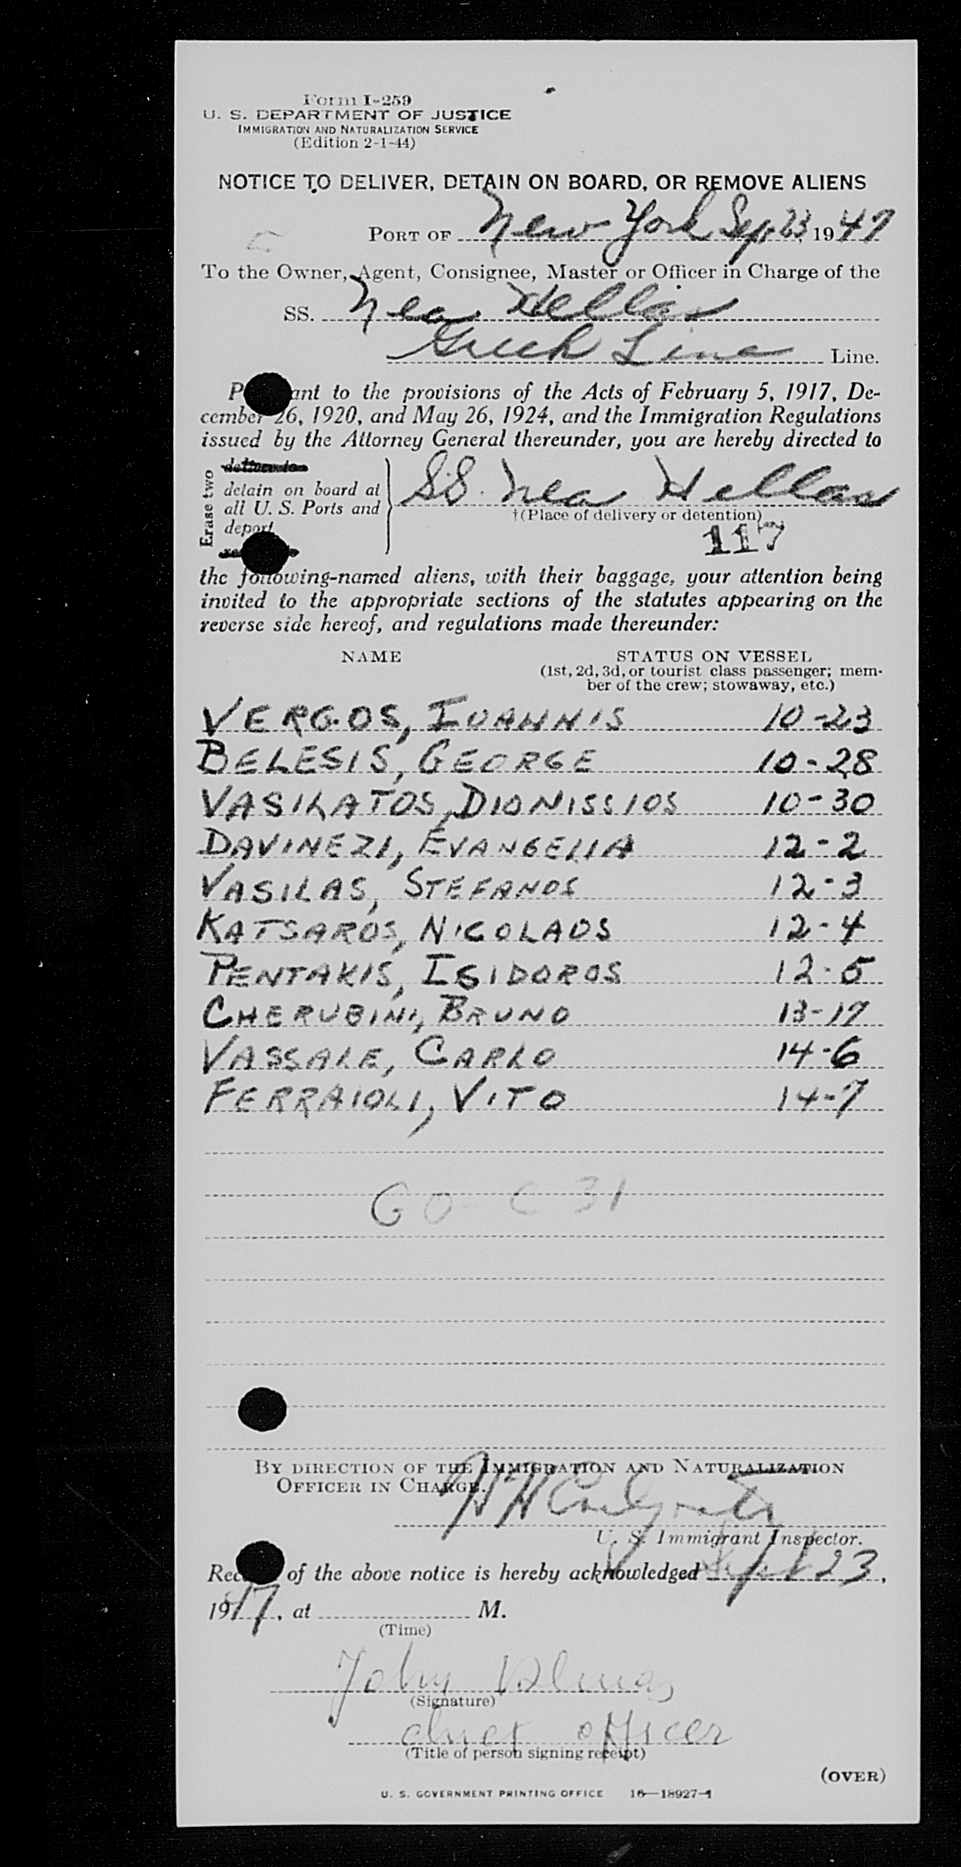 Form I-259
U. S. DEPARTMENT OF JUSTICE
IMMIGRATION AND NATURALIZATION SERVICE
(Edition 2-1-44)
NOTICE TO DELIVER, DETAIN ON BOARD, OR REMOVE ALIENS
PORT OF New York Sep 23, 1947
To the Owner, Agent, Consignee, Master or Officer in Charge of the
SS. Nea Hellas
Greek Line Line.
P ant to the provisions of the Acts of February 5, 1917, De-
cember 26, 1920, and May 26, 1924, and the Immigration Regulations
issued by the Attorney General thereunder, you are hereby directed to
Erase two
deliver to
detain on board at
all U. S. Ports and
deport
SS. Nea Hellas
†(Place of delivery or detention)
117
the following-named aliens, with their baggage, your attention being
invited to the appropriate sections of the statutes appearing on the
reverse side hereof, and regulations made thereunder:
NAME STATUS ON VESSEL
(1st, 2d, 3d, or tourist class passenger; mem-
ber of the crew; stowaway, etc.)
VERGOS, IOANNIS 10-23
BELESIS, GEORGE 10-28
VASILATOS, DIONISSIOS 10-30
DAVINEZI, EVANGELIA 12-2
VASILAS, STEFANOS 12-3
KATSAROS, NICOLAOS 12-4
PENTAKIS, ISIDOROS 12-5
CHERUBINI, BRUNO 13-17
VASSALE, CARLO 14-6
FERRAIOLI, VITO 14-7
GO C 31
BY DIRECTION OF THE IMMIGRATION AND NATURALIZATION
OFFICER IN CHARGE.
U. S. Immigrant Inspector.
Rec of the above notice is hereby acknowledged Sept 23,
1947, at M.
(Time)
John
(Signature)
chief officer
(Title of person signing receipt)
(OVER)
U. S. GOVERNMENT PRINTING OFFICE 16—18927-1